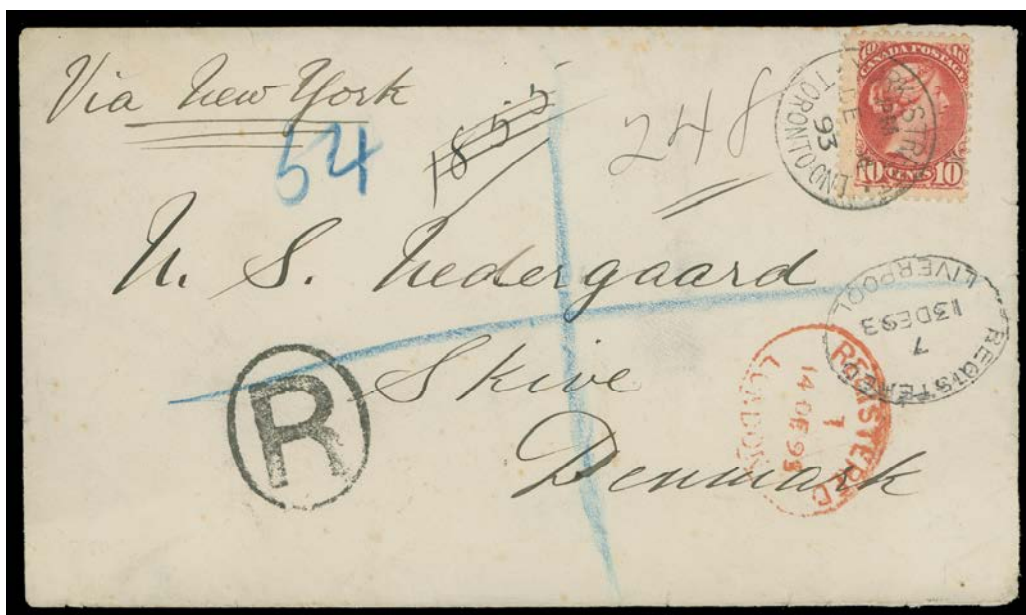 Via New York
54
1855
248
CANADA POSTAGE
10 CENTS 10
TORONTO ONT
PM
DE
93
N. S. Nedergaard
Skive
Denmark
R
REGISTERED
7
13DE93
LIVERPOOL
REGISTERED
7
14DE93
LONDON